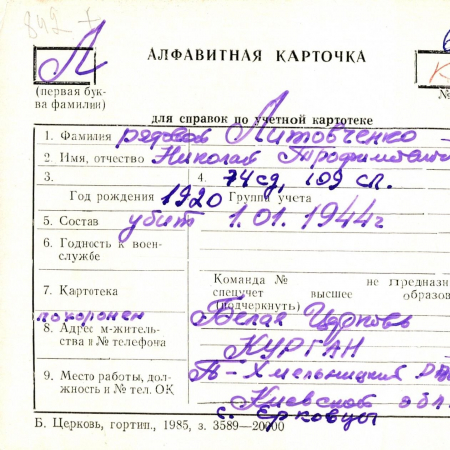 842
Л
АЛФАВИТНАЯ КАРТОЧКА
(первая бук-
ва фамилии)
№
для справок по учетной картотеке
1. Фамилия рядовой Литовченко
2. Имя, отчество Николай Трофимович
3. 4. 74 сд, 109 сп.
Год рождения 1920 Группа учета
5. Состав убит 1.01.1944г
6. Годность к воен-
службе
Команда № не предназн
7. Картотека спецучет высшее образов
(подчеркнуть)
похоронен Белая Церковь
8. Адрес м-житель-
ства и № телефона КУРГАН
9. Место работы, дол-
жность и № тел. ОК
Б-Хмельницкий
Киевской обл.
с. Ерковцы
Б. Церковь, гортип., 1985, з. 3589—20000